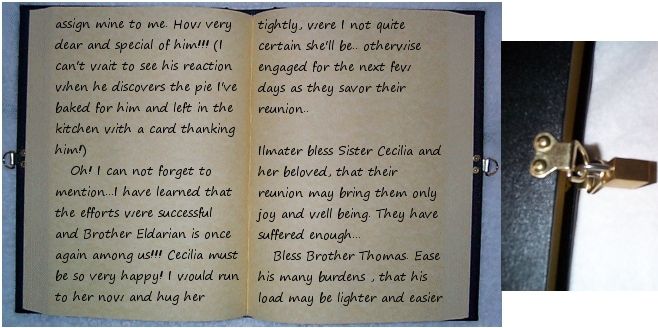 assign mine to me. How very
dear and special of him!!! (I
can't wait to see his reaction
when he discovers the pie I've
baked for him and left in the
kitchen with a card thanking
him!)
Oh! I can not forget to
mention...I have learned that
the efforts were successful
and Brother Eldarian is once
again among us!!! Cecilia must
be so very happy! I would run
to her now and hug her
tightly, were I not quite
certain she'll be.. otherwise
engaged for the next few
days as they savor their
reunion..
Ilmater bless Sister Cecilia and
her beloved, that their
reunion may bring them only
joy and well being. They have
suffered enough...
Bless Brother Thomas. Ease
his many burdens , that his
load may be lighter and easier